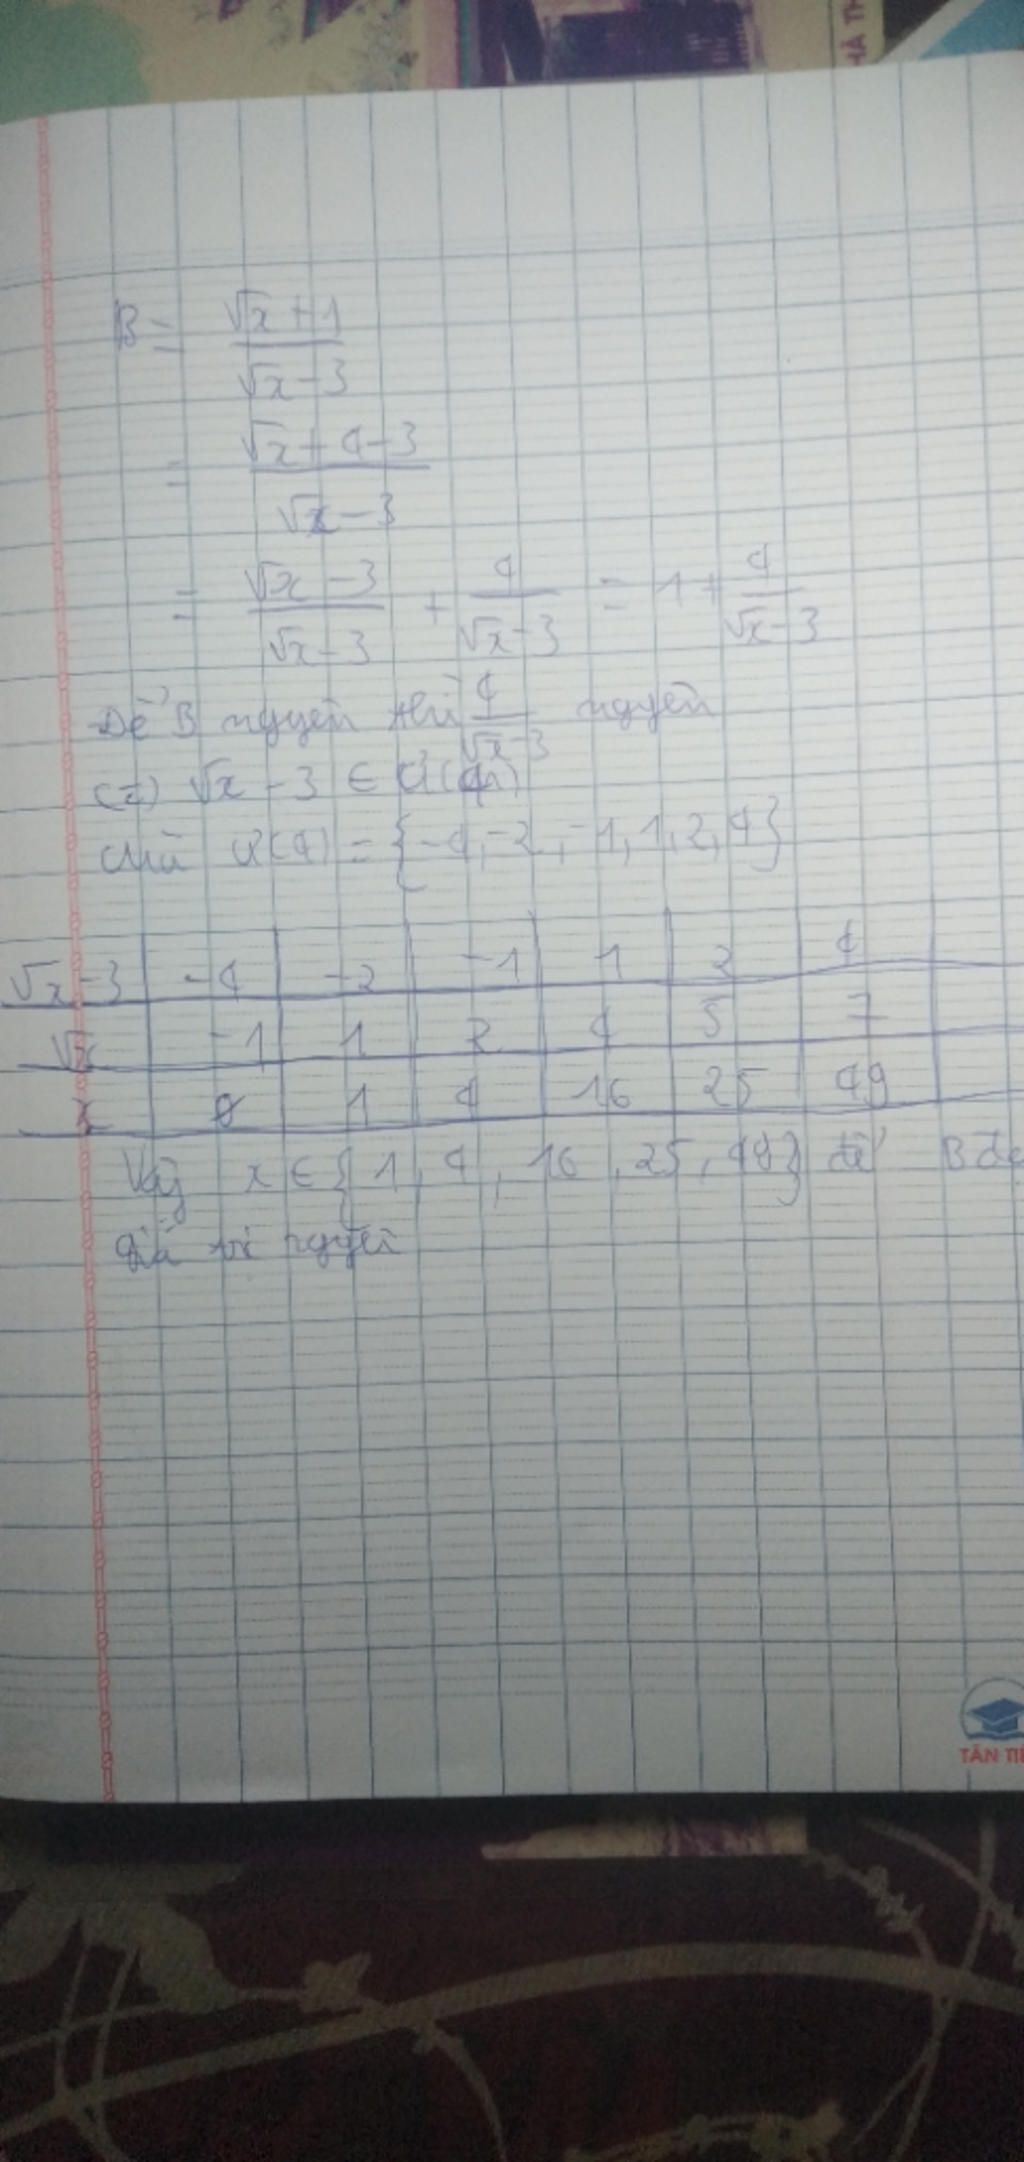 B = (√x + 1)/(√x - 3)
= (√x + 4 - 3)/(√x - 3)
= (√x - 3)/(√x - 3) + 4/(√x - 3) = 1 + 4/(√x - 3)
Để B nguyên thì 4/(√x - 3) nguyên
√x - 3 ∈ Ư(4)
mà Ư(4) = {-4, -2, -1, 1, 2, 4}
√x - 3 | -4 | -2 | -1 | 1 | 2 | 4
√x | -1 | 1 | 2 | 4 | 5 | 7
x | | 1 | 4 | 16 | 25 | 49
Vậy x ∈ {1, 4, 16, 25, 49} để B
giá trị nguyên
TÂN TI